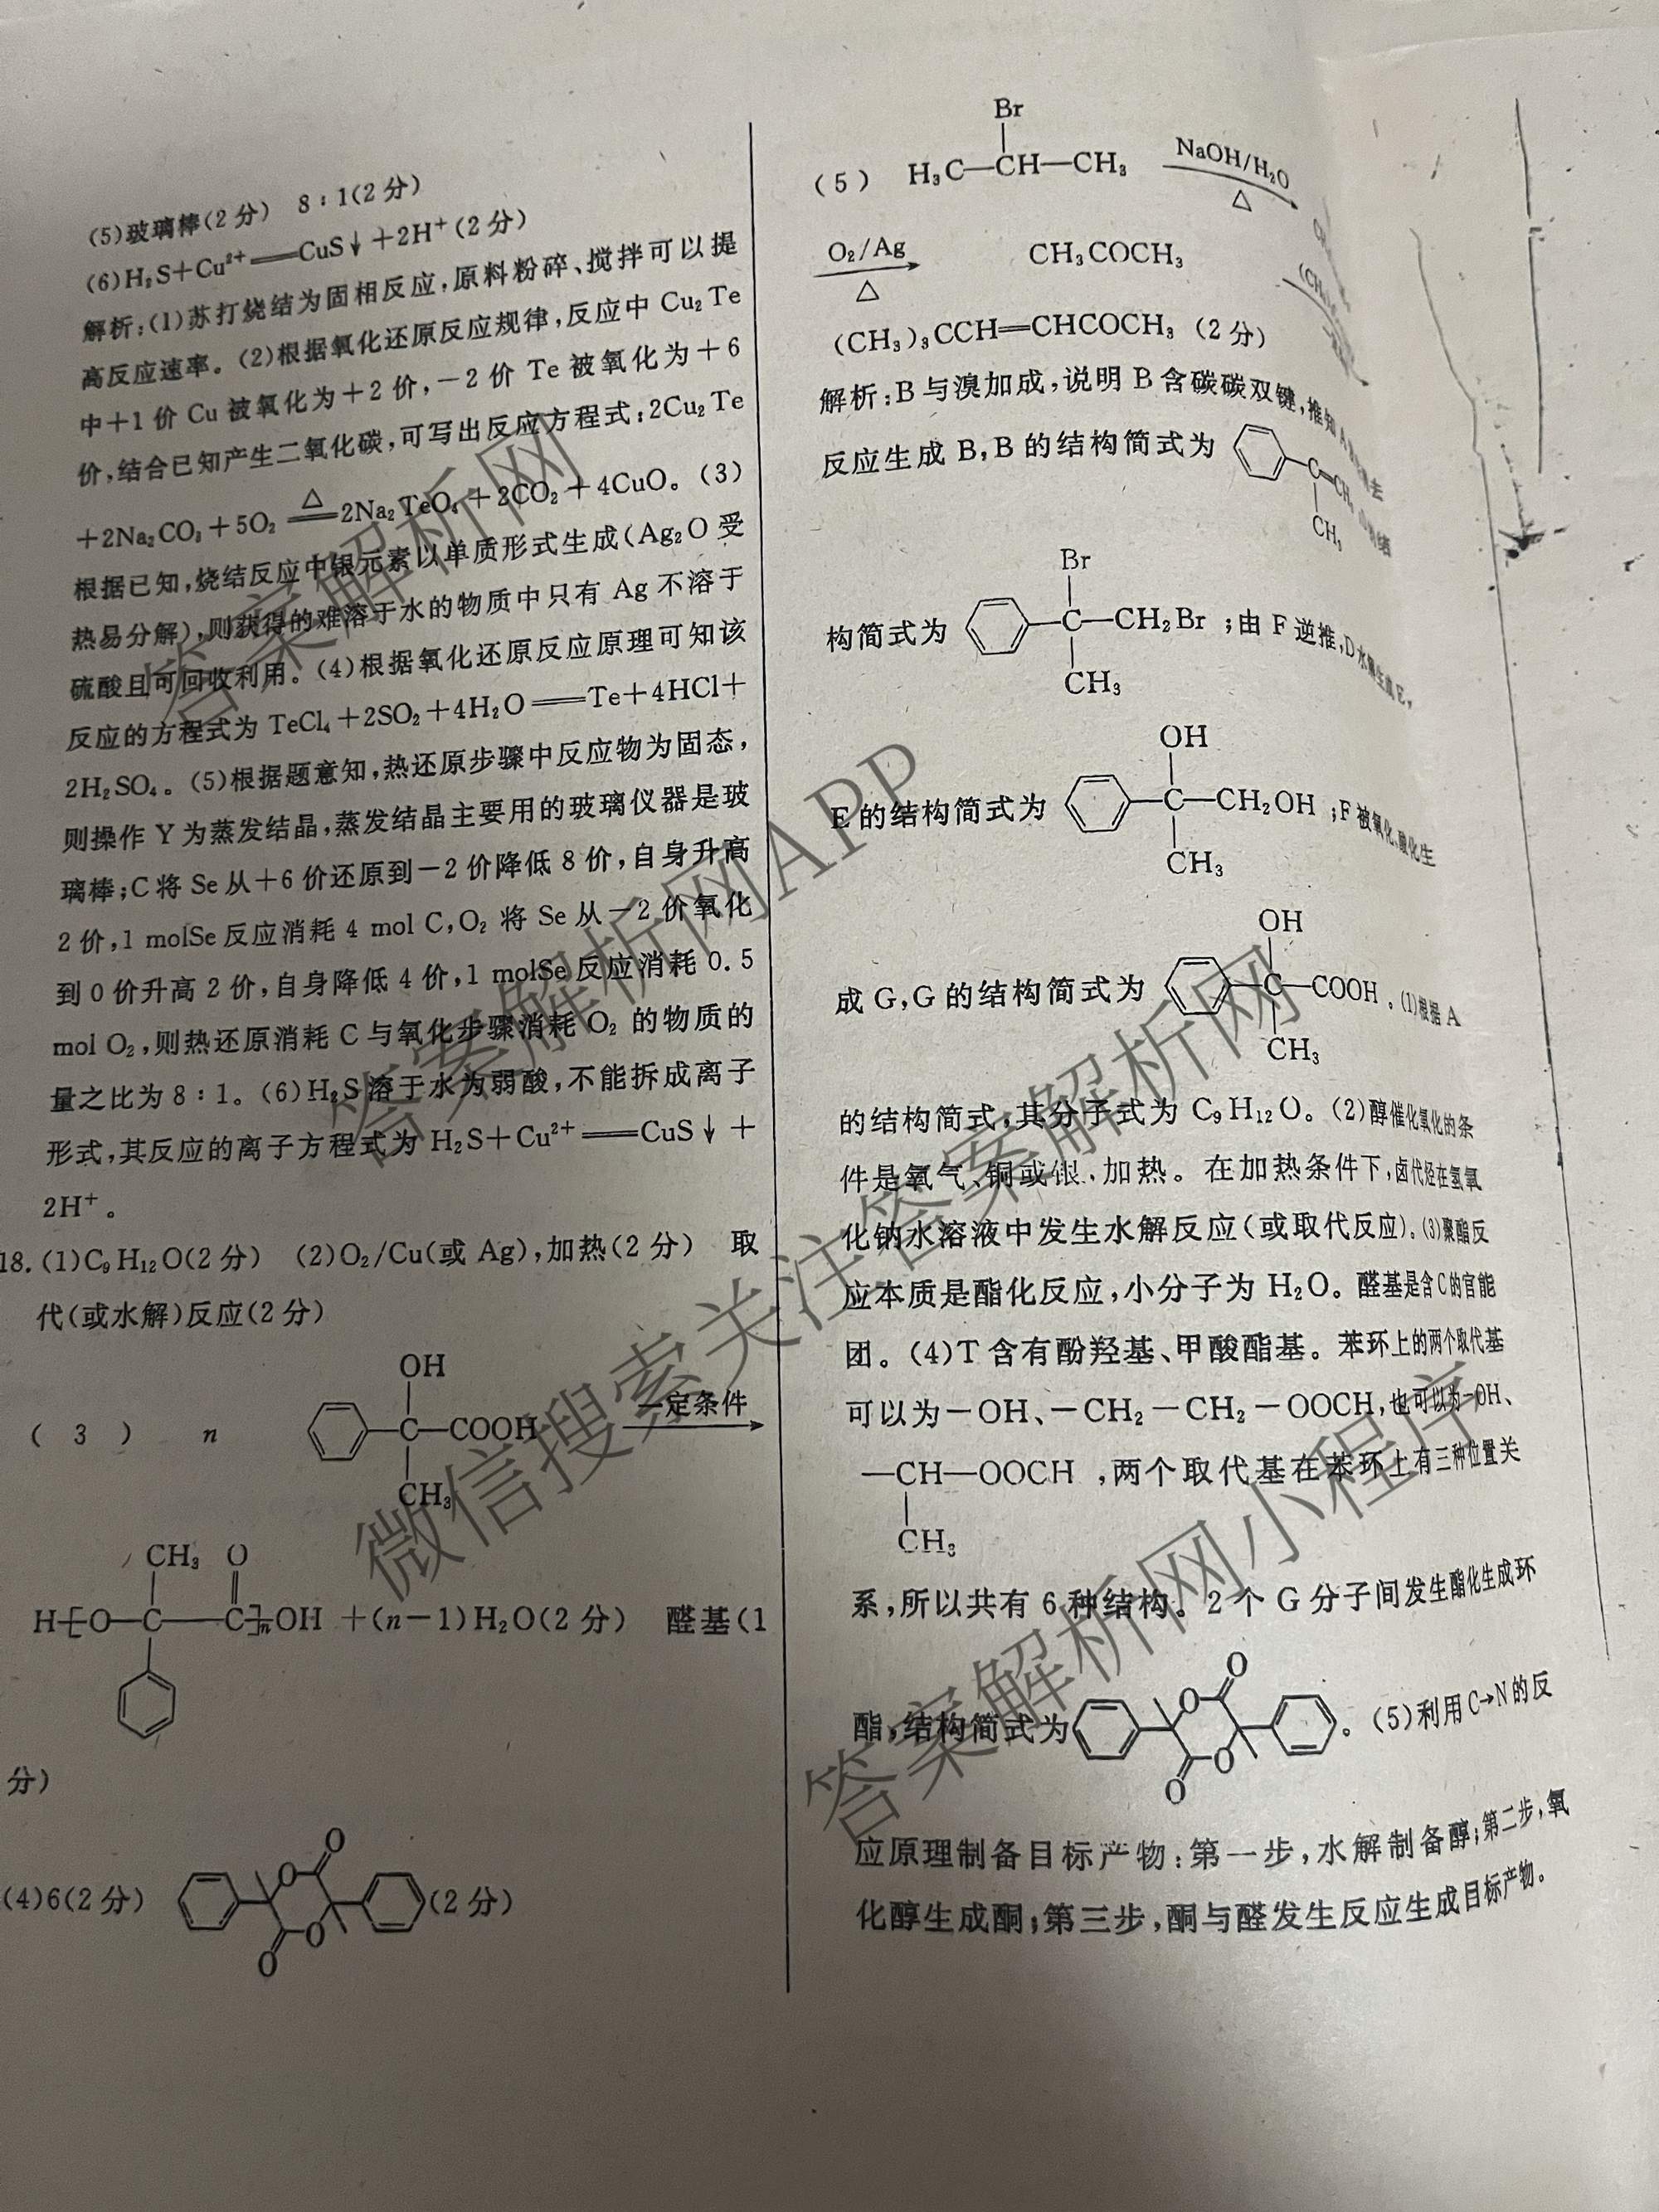 (5)玻璃棒(2分) 8∶1(2分)
(6)H₂S+Cu²⁺══CuS↓+2H⁺(2分)
解析:(1)苏打烧结为固相反应,原料粉碎、搅拌可以提
高反应速率。(2)根据氧化还原反应规律,反应中 Cu₂Te
中+1价 Cu 被氧化为+2价,-2价 Te 被氧化为+6
价,结合已知产生二氧化碳,可写出反应方程式:2Cu₂Te
+2Na₂CO₃+5O₂ ══△ 2Na₂TeO₄+2CO₂+4CuO。(3)
根据已知,烧结反应中银元素以单质形式生成(Ag₂O 受
热易分解),则获得的难溶于水的物质中只有 Ag 不溶于
硫酸且可回收利用。(4)根据氧化还原反应原理可知该
反应的方程式为 TeCl₄+2SO₂+4H₂O══Te+4HCl+
2H₂SO₄。(5)根据题意知,热还原步骤中反应物为固态,
则操作 Y 为蒸发结晶,蒸发结晶主要用的玻璃仪器是玻
璃棒;C 将 Se 从+6价还原到-2价降低8价,自身升高
2价,1 molSe 反应消耗 4 mol C,O₂ 将 Se 从-2价氧化
到0价升高2价,自身降低4价,1 molSe 反应消耗 0.5
mol O₂,则热还原消耗 C 与氧化步骤消耗 O₂ 的物质的
量之比为8∶1。(6)H₂S 溶于水为弱酸,不能拆成离子
形式,其反应的离子方程式为 H₂S+Cu²⁺══CuS↓+
2H⁺。
18.(1)C₉H₁₂O(2分) (2)O₂/Cu(或 Ag),加热(2分) 取
代(或水解)反应(2分)
OH
(3) n C—COOH 一定条件
CH₃
CH₃ O
H-[O—C—C]ₙOH +(n-1)H₂O(2分) 醛基(1
分)
O
O
(4)6(2分) (2分)
O
O
Br
(5) H₃C—CH—CH₃ NaOH/H₂O
△
O₂/Ag CH₃COCH₃
△
(CH₃)₃CCH═CHCOCH₃(2分)
解析:B 与溴加成,说明 B 含碳碳双键,推知 A
反应生成 B,B 的结构简式为 C
CH₃
Br
构简式为 C—CH₂Br ;由 F 逆推,D 水解生成 E,
CH₃
OH
E 的结构简式为 C—CH₂OH ;F 被氧化、酸化生
CH₃
OH
成 G,G 的结构简式为 C—COOH 。(1)根据 A
CH₃
的结构简式,其分子式为 C₉H₁₂O。(2)醇催化氧化的条
件是氧气、铜或银、加热。在加热条件下,卤代烃在氢氧
化钠水溶液中发生水解反应(或取代反应)。(3)聚酯反
应本质是酯化反应,小分子为 H₂O。醛基是含 C 的官能
团。(4)T 含有酚羟基、甲酸酯基。苯环上的两个取代基
可以为—OH、—CH₂—CH₂—OOCH,也可以为—OH、
—CH—OOCH ,两个取代基在苯环上有三种位置关
CH₃
系,所以共有6种结构。2个 G 分子间发生酯化生成环
O
O
酯,结构简式为 。(5)利用 C→N 的反
O
O
应原理制备目标产物:第一步,水解制备醇;第二步,氧
化醇生成酮;第三步,酮与醛发生反应生成目标产物。
答案解析网
答案解析网APP
微信搜索关注答案解析网
答案解析网小程序